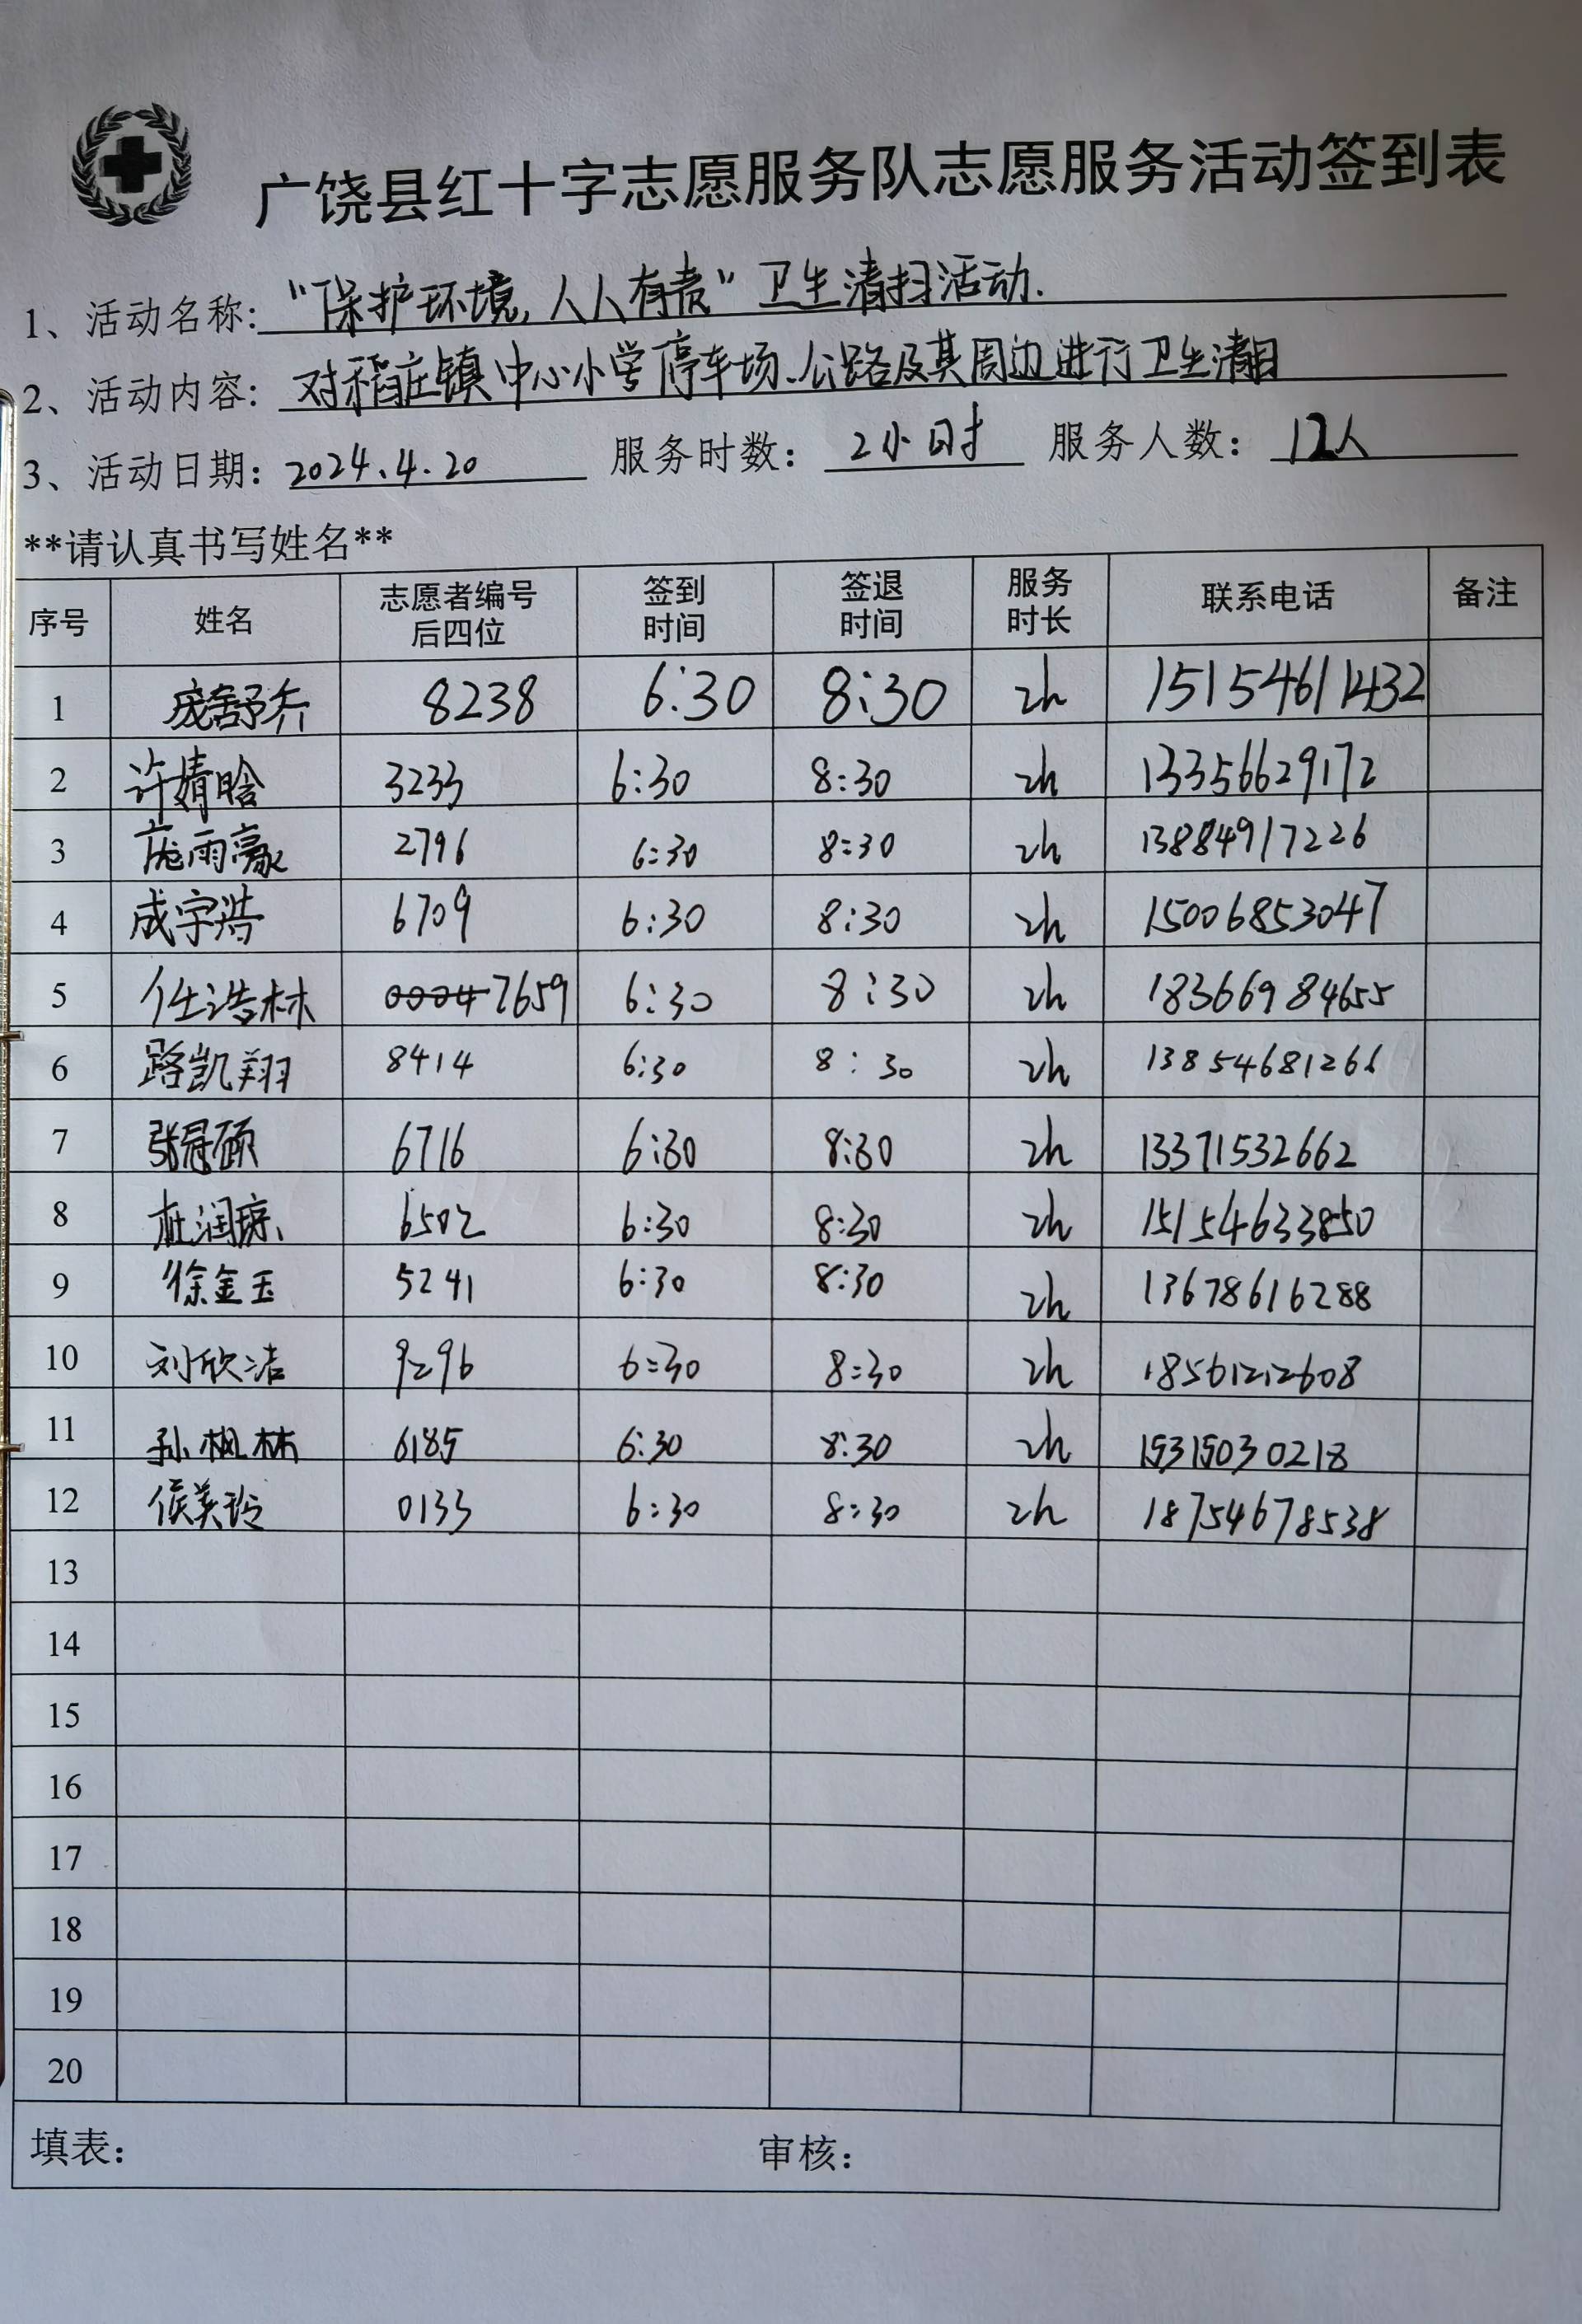 广饶县红十字志愿服务队志愿服务活动签到表
1、活动名称:“保护环境,人人有责”卫生清扫活动.
2、活动内容: 对稻庄镇中心小学停车场、公路及其周边进行卫生清扫
3、活动日期: 2024.4.20 服务时数: 2小时 服务人数: 12人
**请认真书写姓名**
序号 姓名 志愿者编号后四位 签到时间 签退时间 服务时长 联系电话 备注
1 庞舒乔 8238 6:30 8:30 2h
2 许婧晗 3233 6:30 8:30 2h 13356629172
3 庞雨豪 2796 6:30 8:30 2h 13884917226
4 成宇浩 6709 6:30 8:30 2h 15006853047
5 任浩林 7659 6:30 8:30 2h 18366984655
6 路凯翔 8414 6:30 8:30 2h 13854681266
7 张冠硕 6716 6:30 8:30 2h 13371532662
8 杜润 6502 6:30 8:30 2h 15154633850
9 徐金玉 5241 6:30 8:30 2h 13678616288
10 刘欣洁 9296 6:30 8:30 2h 18561212608
11 孙枫林 6185 6:30 8:30 2h 15315030218
12 侯美玲 0133 6:30 8:30 2h 18754678538
13
14
15
16
17
18
19
20
填表: 审核: